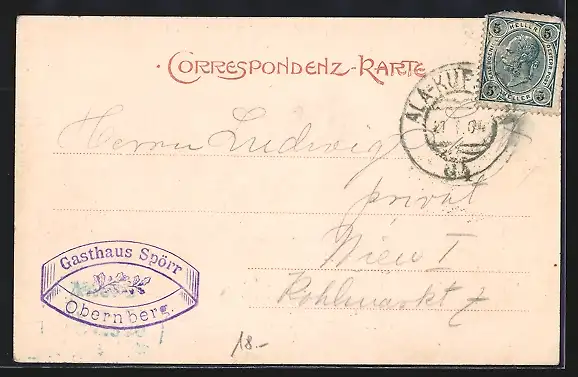 CORRESPONDENZ-KARTE
5 HELLER 5
5 HELLER 5
ALA-KUF
04
Herrn Ludwig
privat
Wien I
Kohlmarkt 7
Gasthaus Spörr
Obernberg.
18.-